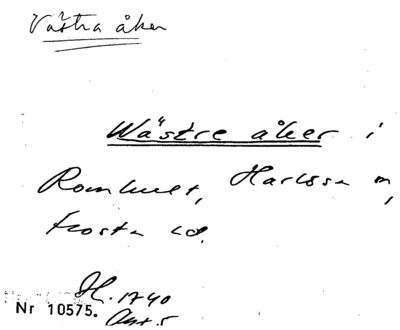 Västra åker
Wästre åker i
Romhult, Harlösa sn,
Frosta hd.
Sk. 1740
Nr 10575. Akt 5